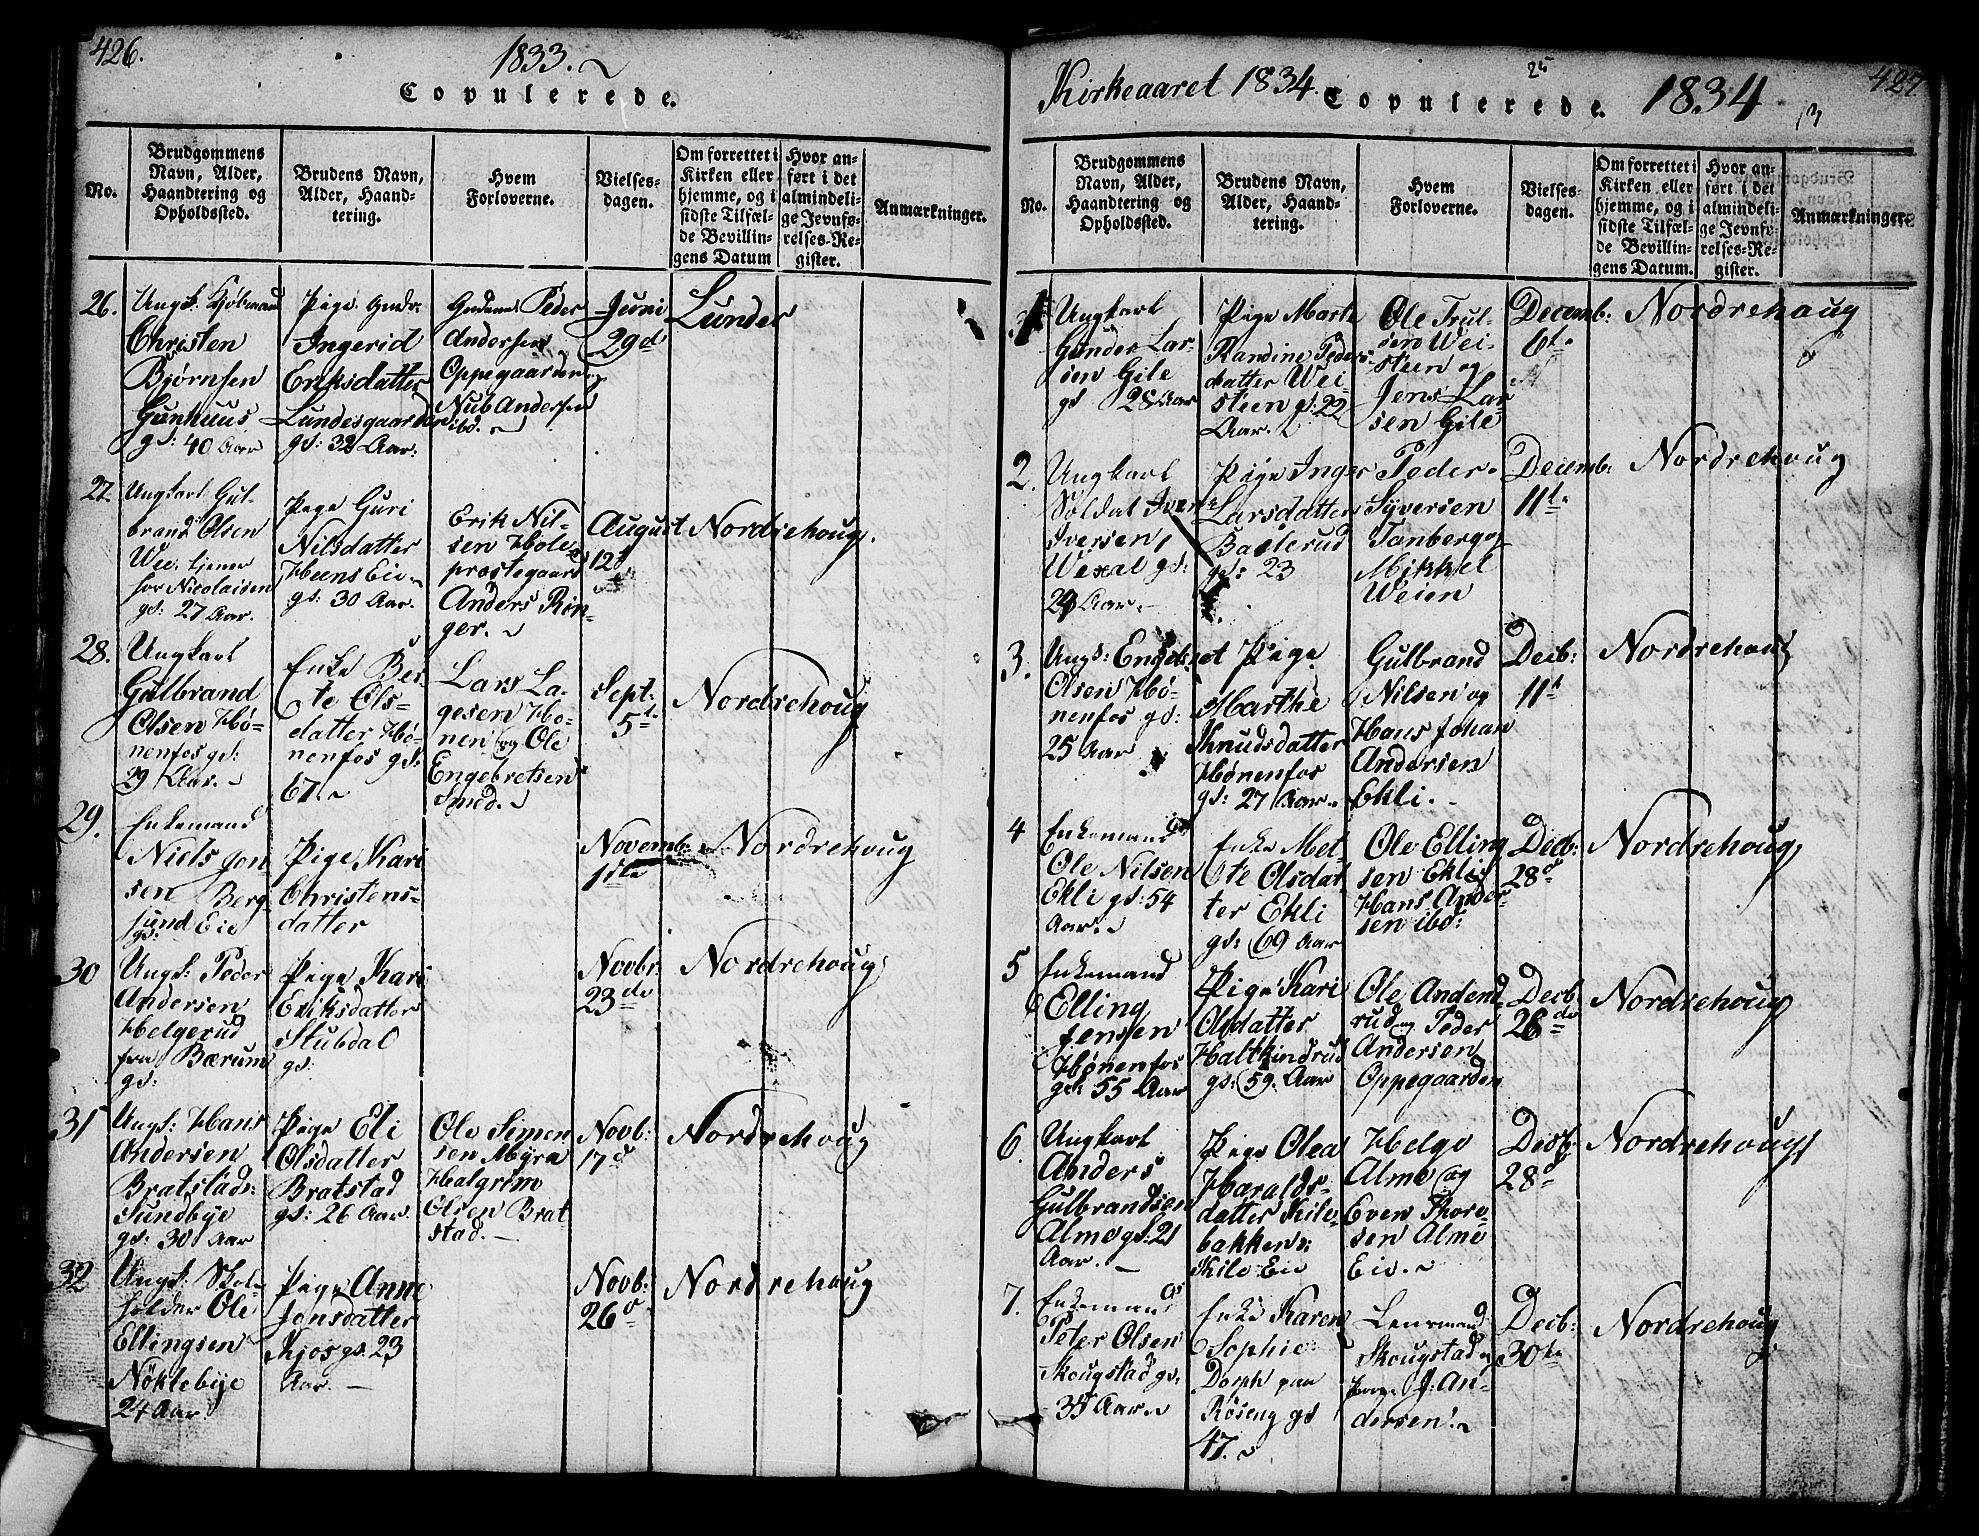 426.
1833.
Copulerede.
No.
Brudgommens
Navn, Alder,
Haandtering og
Opholdssted.
Brudens Navn,
Alder, Haand-
tering.
Hvem
Forloverne.
Vielses-
dagen.
Om forrettet i
Kirken eller
hjemme, og i
sidste Tilfæl-
de Bevillin-
gens Datum
Hvor an-
ført i det
almindeli-
ge Jevnfø-
relses-Re-
gister.
Anmærkninger.
26.
Ungk.
Christen
Bjørnsen
Gunhuus
gs: 40 Aar
Pige
Ingerid
Eriksdatter
Lundesgaarden
gs: 32 Aar.
Peder
Andersen
Oppegaarden og
Nub Andersen
ibd.
Juni
29d
Lunder
27.
Ungkarl Gul-
brand Olsen
Wee, tjener
for Nicolaisen
gs: 27 Aar.
Pige Guri
Nilsdatter
Heens Eie
gs: 30 Aar.
Erik Nil-
sen Hole
præstegaard
Anders Rin-
ger.
August
12t
Nordrehoug.
28.
Ungkarl
Gulbrand
Olsen Hø-
nenfos gs:
29 Aar.
Enke Ber-
te Ols-
datter Hø-
nenfos gs:
67.
Lars La-
gesen Hø-
nen og Ole
Engebretsen
Smed.
Sept.
5t
Nordrehoug
29.
Enkemand
Niels Jen
sen Berg-
sund Eie
gs:
Pige Kari
Christens-
datter
Novemb:
1ste
Nordrehoug
30
Ungk: Peder
Andersen
Helgerud
fra Bærum
gs:
Pige Kari
Eriksdatter
Stubdal
gs:
Novbr.
23de
Nordrehoug
31
Ungk: Hans
Andersen
Bratstads:
Sundbye
gs: 30 Aar
Pige Eli
Olsdatter
Bratstad
gs: 26 Aar.
Ole Simen
sen Myra
Halgrim
Olsen Brat
stad.
Novb:
17d
Nordrehoug
32
Ungk: Skol-
holder Ole
Ellingsen
Nöklebye
24 Aar
Pige Anne
Jensdatter
Kjos gs. 23
Aar.
Novb:
26d
Nordrehoug
Kirkeaaret 1834.
Copulerede.
25
1834
427
No.
Brudgommens
Navn, Alder,
Haandtering og
Opholdssted.
Brudens Navn,
Alder, Haand-
tering.
Hvem
Forloverne.
Vielses-
dagen.
Om forrettet i
Kirken eller
hjemme, og i
sidste Tilfæl-
de Bevillin-
gens Datum.
Hvor an-
ført i det
almindeli-
ge Jevnfø-
relses-Re-
gister.
Anmærkninger.
1
Ungkarl
Gunder Lar-
sen Gile
gs 28 Aar
Pige Marte
Randine Peders
datter Wei-
steen gs: 22
Aar.
Ole Trul-
sen Wei-
steen og
Jens Lar
sen Gile
Decemb:
6t
Nordrehaug
2.
Ungkarl
Soldat Iver
Iversen
Wexal gs:
29 Aar.
Pige Inger
Larsdatter
Baelerud
gs: 23
Peder
Syversen
Tanberg og
Mikkel
Weien
Decemb:
11t
Nordrehoug
3.
Ungk: Engebret
Olsen Hø-
nenfos gs:
25 Aar
Pige
Marthe
Knudsdatter
Hønenfos
gs: 27 Aar.
Gulbrand
Nilsen og
Hans Johan
Andersen
Ekli.
Decb:
11t
Nordrehoug
4
Enkemand
Ole Nilsen
Ekli gs: 54
Aar.
Enke Met-
te Olsdat
ter Ekli
gs: 69 Aar
Ole Elling
sen Ekli
Hans Ander
sen ibd:
Decb:
28d
Nordrehoug
5
Enkemand
Elling
Jensen
Hønenfos
gs: 55 Aar
Pige Kari
Olsdatter
Halkindrud
gs: 59. Aar
Ole Andend-
rud og Peder
Andersen
Oppegaarden
Decb:
28de
Nordrehoug
6.
Ungkarl
Anders
Gulbrandsen
Alme gs: 21
Aar.
Pige Olea
Haralds-
datter Kile-
bakkens:
Kile Eie
Helge
Alme og
Even Thore-
sen Alme
Eie.
Decb:
28d
Nordrehoug
7.
Enkemand
Peter Olsen
Skougstad gs.
35 Aar.
Enke Karen
Sophie
Dorph paa
Røseng gs
47.
Lensmand
Skougstad
J. An-
dersen.
Decb:
30te
Nordrehoug